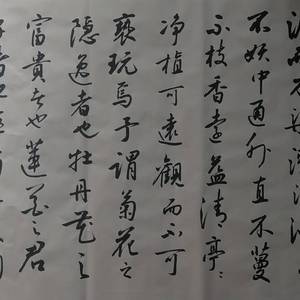 不妖中通外直不蔓
不枝香遠益清亭〻
净植可遠觀而不可
褻玩焉予謂菊花之
隱逸者也牡丹花之
富貴者也蓮花之君